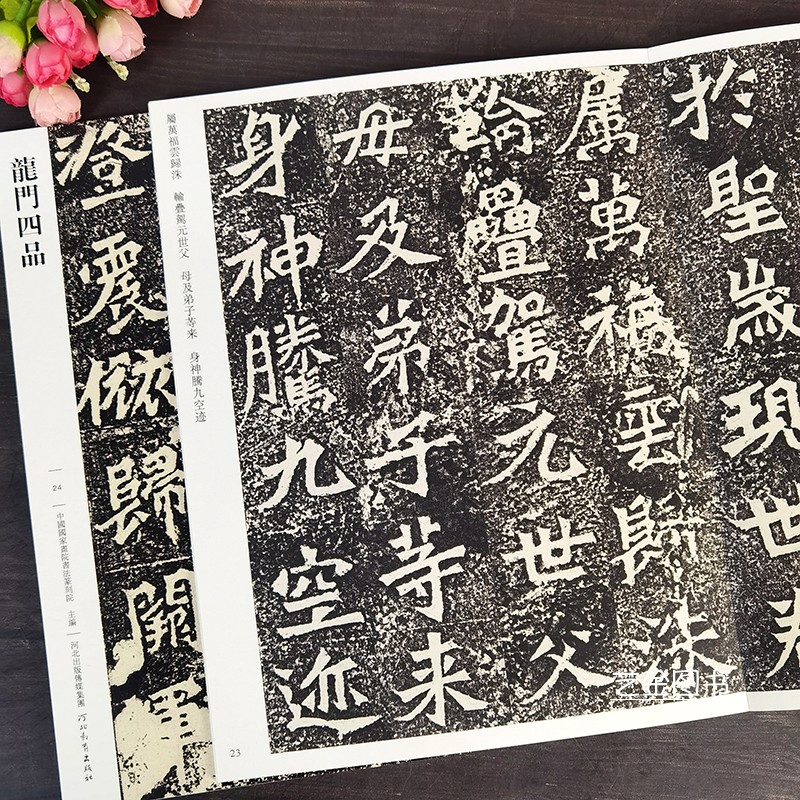 於聖歲現世
屬萬福雲歸洙
輪疊駕元世父
母及弟子等来
身神騰九空迹
屬萬福雲歸洙 輪疊駕元世父 母及弟子等来 身神騰九空迹
23
澄震依歸
龍門四品
24
中國國家畫院書法篆刻院 主編
河北出版傳媒集團
河北教育出版社